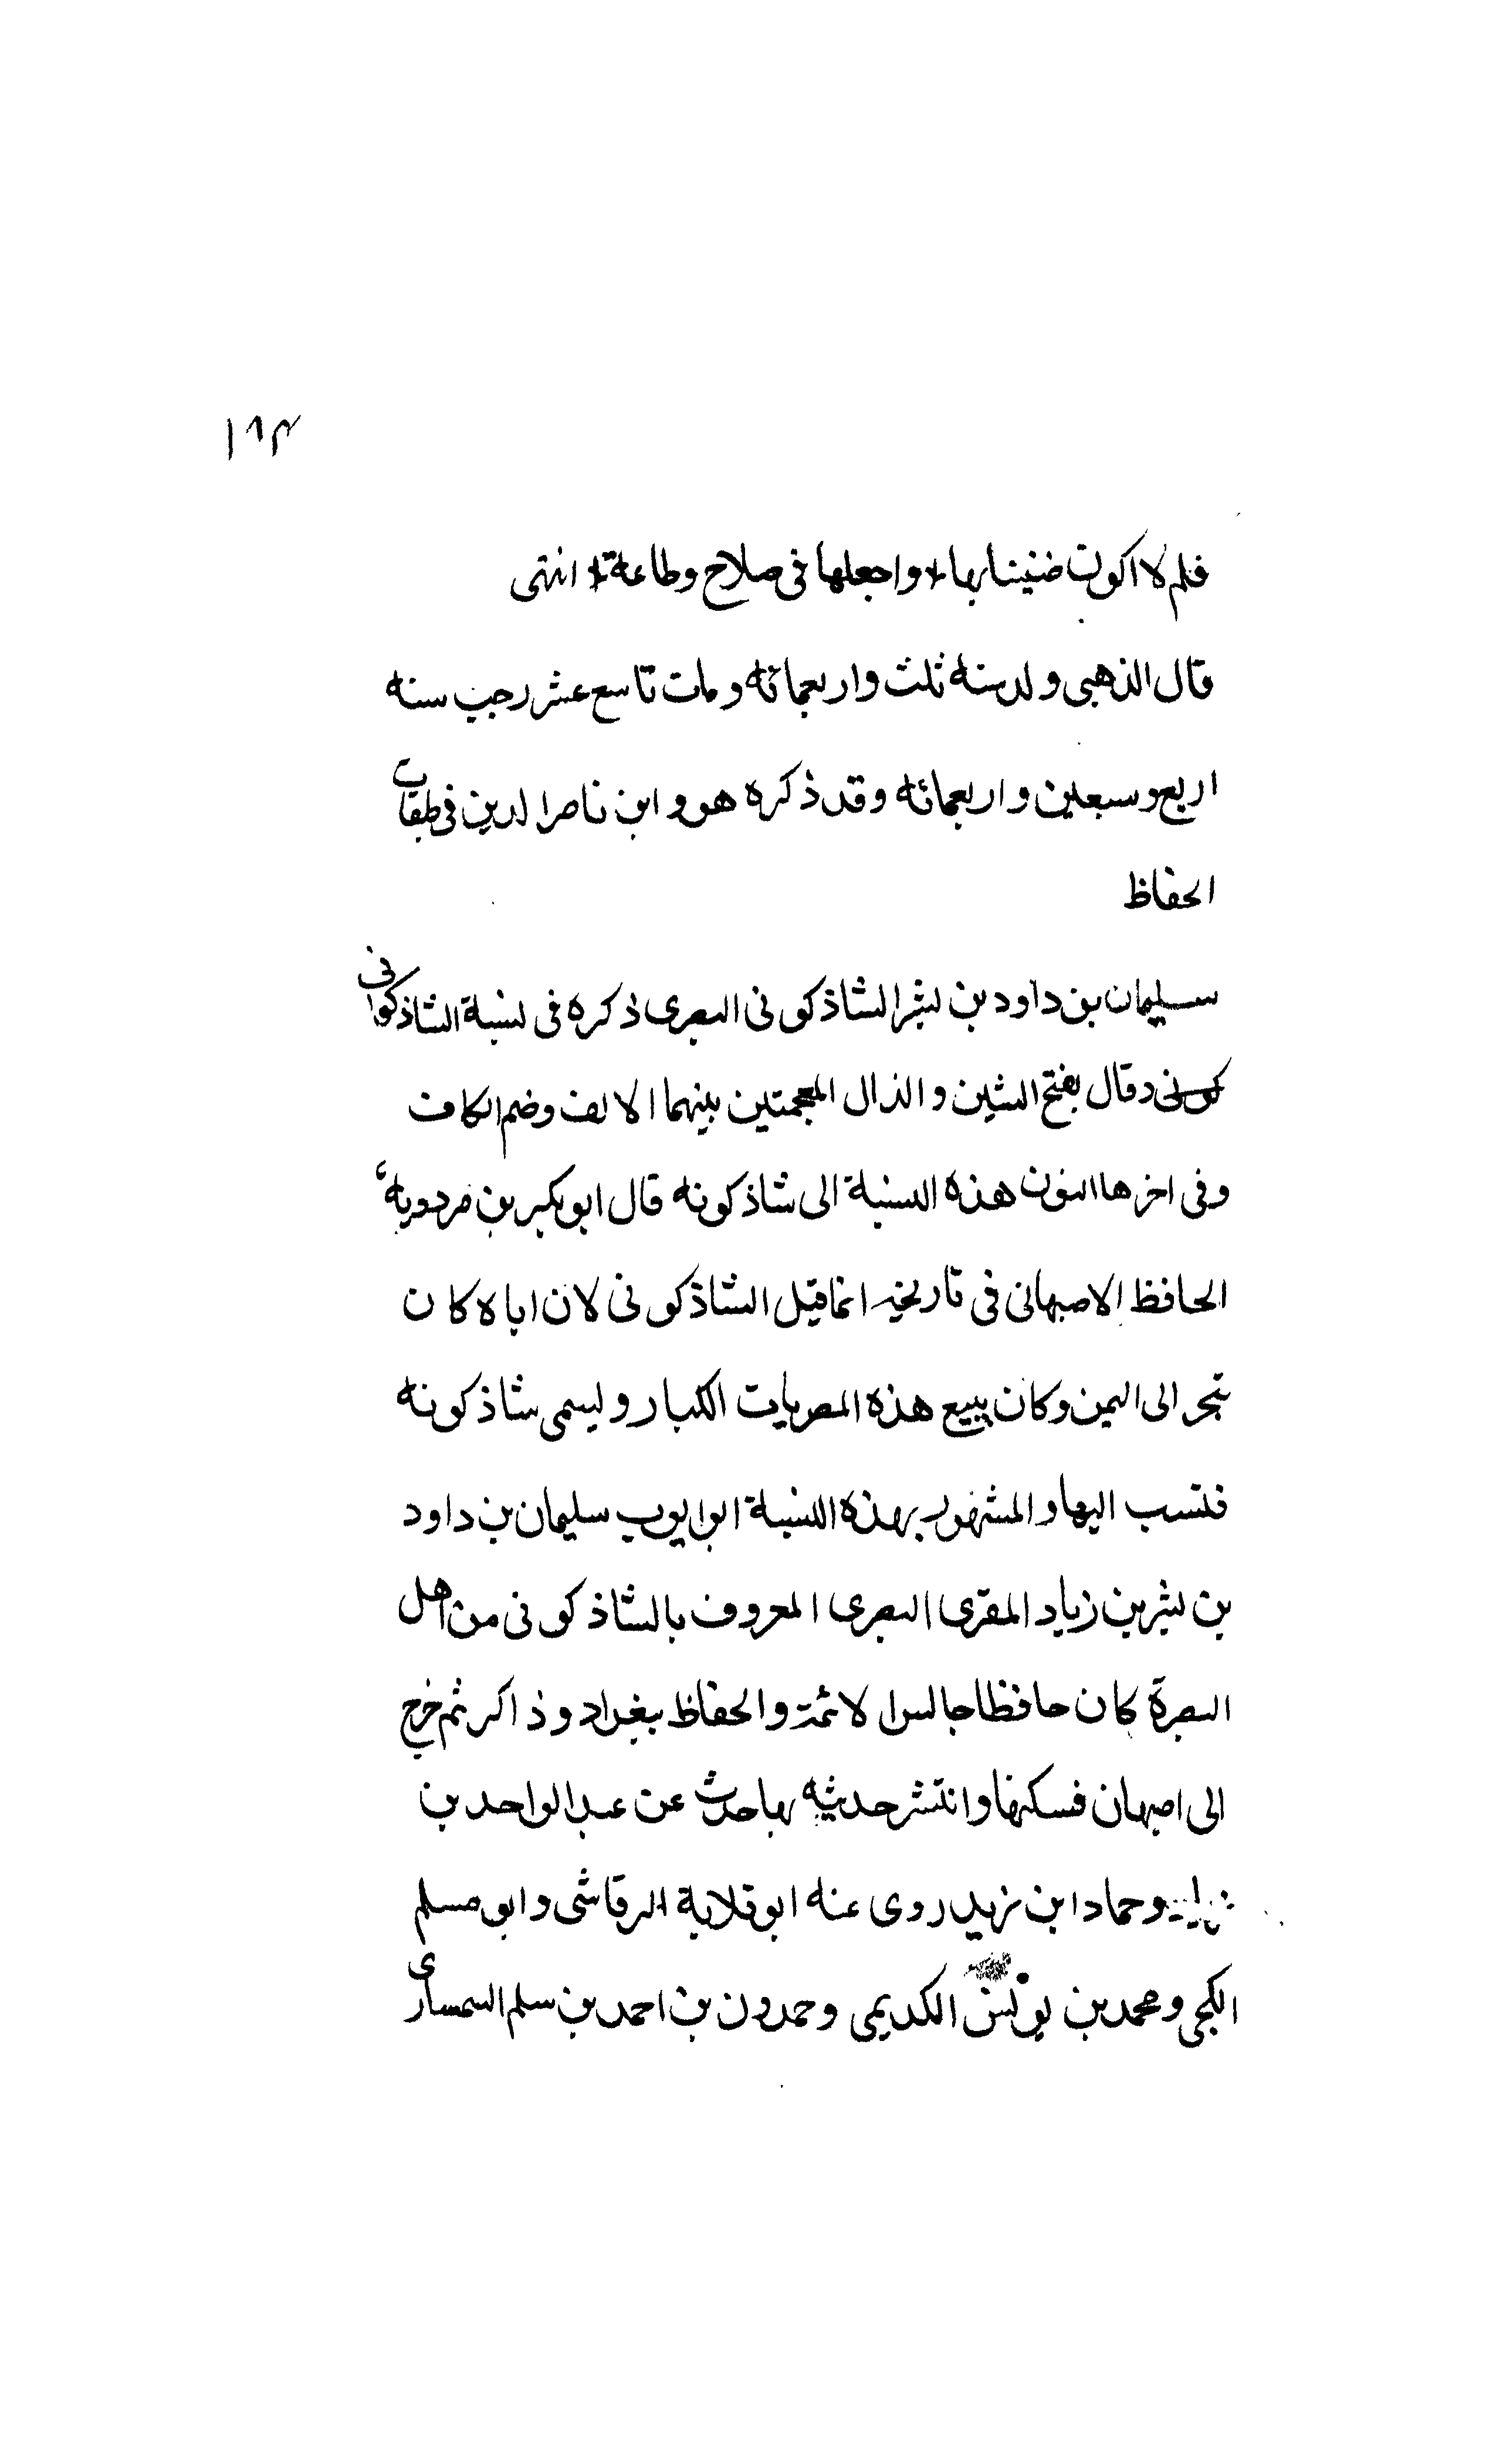 ١٩٣
فلم لا اكون ضنينا بها + واجعلها فى صلاح وطاعة + انتهى
قال الذهبى ولد سنه ثلث واربعمائه ومات تاسع عشر رجب سنه
اربع وسبعين واربعمائه وقد ذكره هو وابن ناصر الدين فى طبقات
الحفاظ
سليمان بن داود بن بشر الشاذكونى البصرى ذكره فى نسبة الشاذكوانى
وقال بفتح الشين والذال المعجمتين بينهما الالف وضم الكاف
وفى اخرها النون هذه النسبة الى شاذكونه قال ابو بكر بن مردويه
الحافظ الاصبهانى فى تاريخه انما قيل الشاذكونى لان اباه كان
تجر الى اليمن وكان يبيع هذه المضربات الكبار ويسمى شاذكونه
فنسب اليها والمشهور بهذه النسبة ابو ايوب سليمان بن داود
بن بشر بن زياد المقرى البصرى المعروف بالشاذكونى من اهل
البصرة كان حافظا جالس الائمة والحفاظ ببغداد وذاكر ثم خرج
الى اصبهان فسكنها وانتشر حديثه بها حدث عن عبد الواحد بن
وحماد ابن زيد روى عنه ابو قلابة الرقاشى وابو مسلم
الكجى ومحمد بن يونس الكديمى وحمدون بن احمد بن سلم السمسارى